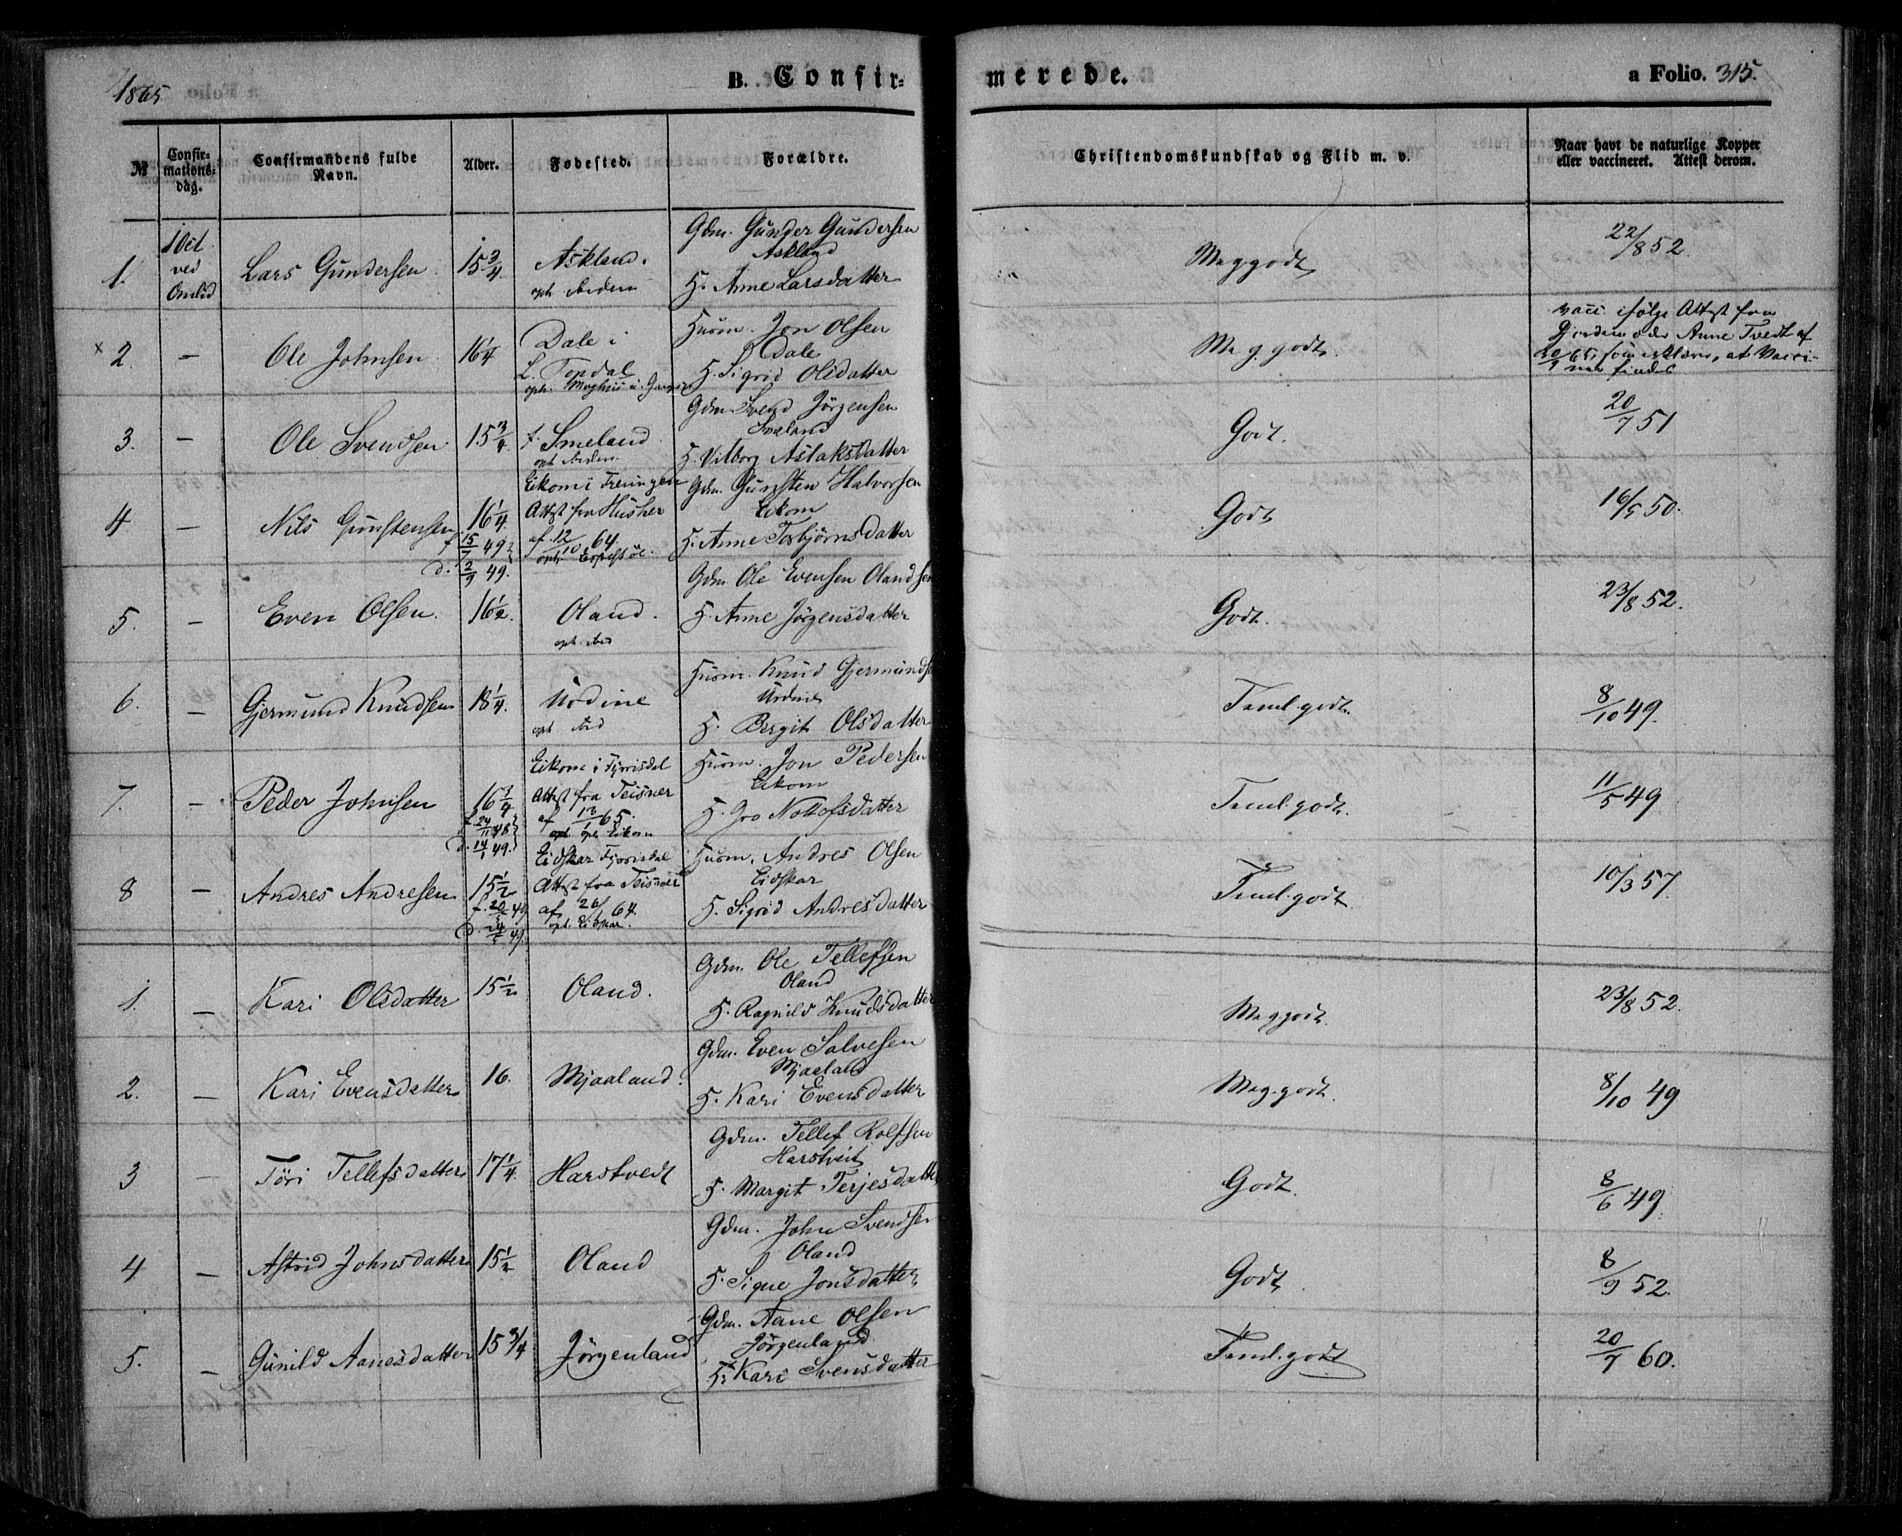 1865
B. Confir-
merede.
a Folio. 315.
№
Confir-
mations-
dag.
Confirmandens fulde
Navn.
Alder.
Fødested.
Forældre.
Christendomskundskab og Flid m. v.
Naar havt de naturlige Kopper
eller vaccineret. Attest derom.
1.
1 Oct.
ved
Omlid
Lars Gundersen
15 3/4
Askland.
oph. ibidem
Gdm. Gunder Gundersen
Askland
H. Anne Larsdatter
Meg. godt
22/8 52.
x 2.
—
Ole Johnsen
16 1/4
Dale i
L. Topdal
oph.
Huusm. Jon Olsen
Dale
H. Sigrid Olsdatter
Meg. godt.
vacc. ifølge Attest fra
Jordemoder Anne Tvedt af
3.
—
Ole Svendsen
15 3/4
Smeland
oph. ibidem.
Gdm. Svend Jörgensen
Smeland
H. Vilborg Aslaksdatter
Godt.
20/7 51
4
—
Nils Gunstensen
16 1/4.
f. 15/7 49
d. 2/9 49.
Eikom i
Attest fra Husher
af 12/10 64.
oph.
Gdm. Gunsten Halvorsen
Eikom
H. Anne Torbjørnsdatter
Godt
16/5 50.
5.
—
Even Olsen.
16 1/2.
Oland.
oph. ibid
Gdm Ole Evensen Oland
H. Anne Jørgensdatter
Godt.
23/8 52.
6.
—
Gjermund Knudsen
18 1/4.
Urdine
oph. ibid
Huusm. Knud Gjermunds
Urdine
H. Birgit Olsdatter
Teml. godt.
8/10 49.
7.
—
Peder Johnsen
16 3/4
f. 24/11 48
d. 14/1 49.
Eikom i Fyrrisdal
Attest fra Teisner
af 13/1 65.
oph. Eikom
Huusm. Jon Pedersen
Eikom
H. Gro Nottofsdatter
Teml. godt.
11/5 49
8
—
Andres Andresen
15 1/2
Eidskar Fyrrisdal
Attest fra Teisner
af 26/ 64.
oph. Eidskar.
Huusm. Andres Olsen
Eidskar
H. Sigrid Andresdatter
Teml. godt.
10/3 57.
1.
—
Kari Olsdatter
15 1/2
Oland.
Gdm. Ole Tellefsen
Oland
H. Ragnild Knudsdatter
Meg. godt.
23/8 52.
2.
—
Kari Evensdatter
16.
Mjaaland.
Gdm. Even Salvesen
Mjaaland
H. Kari Evensdatter
Meg. godt.
8/10 49
3
—
Töri Tellefsdatter
17 1/4.
Harstvedt
Gdm. Tellef Rolfsen
Harstveit
H. Margit Terjesdatter
Godt.
8/6 49.
4
—
Astrid Johnsdatter
15 1/2
Oland
Gdm. John Svendsen
Oland
H. Signe Jonsdatter
Godt.
8/9 52.
5.
—
Gunild Aanesdatter
15 3/4
Jörgenland
Gdm. Aane Olsen
Jörgenland
H. Kari Svensdatter
Teml. godt
20/7 60.